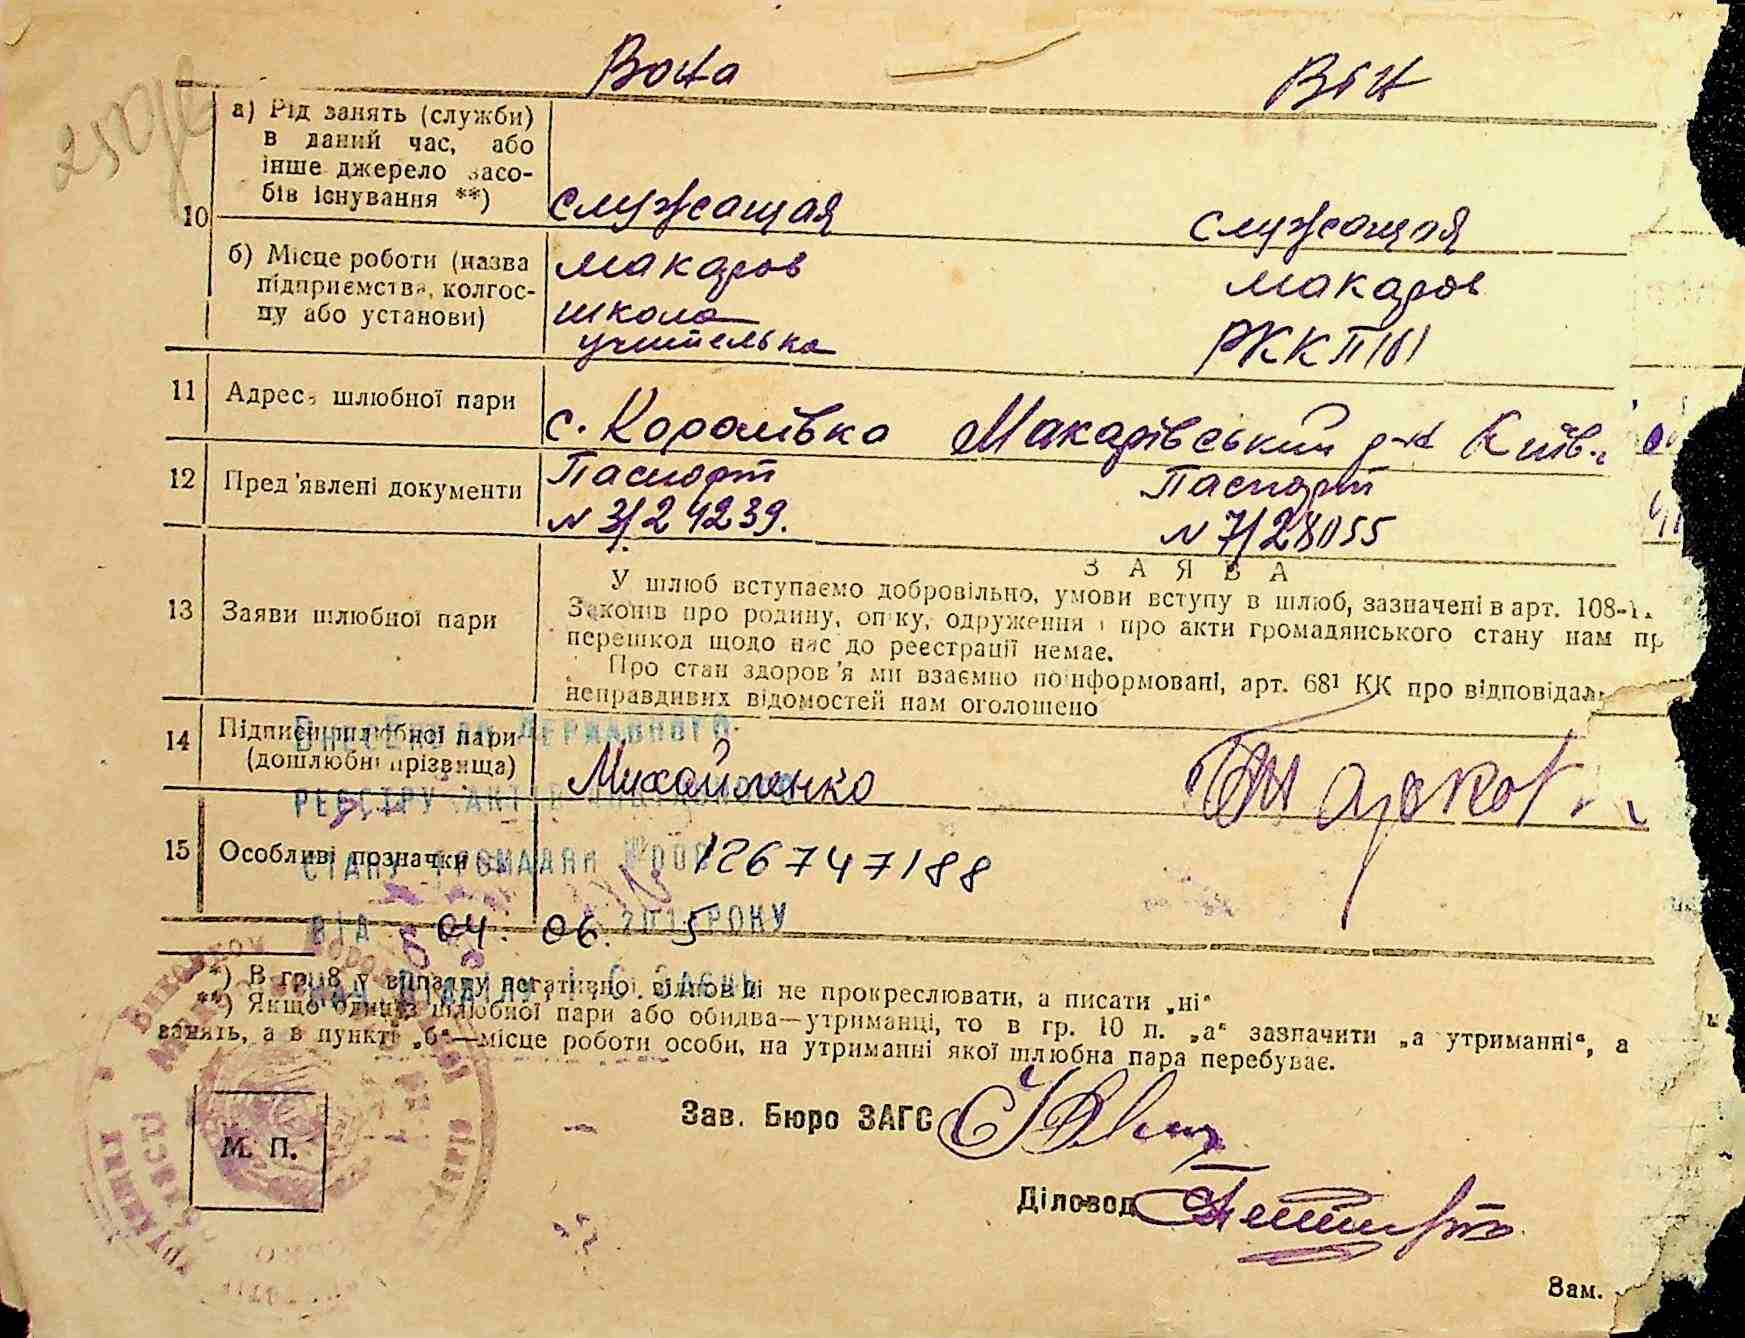 Вона Він
10 а) Рід занять (служби)
в даний час, або
інше джерело засо-
бів існування **)
служащая служащая
б) Місце роботи (назва
підприємства, колгос-
пу або установи)
макаров макаров
школа
учителька РККП
11 Адреса шлюбної пари
с. Королівка Макарівський р-н Київ.
12 Пред'явлені документи
Паспорт Паспорт
N 3/24239. N 7/28055
З А Я В А
13 Заяви шлюбної пари
У шлюб вступаємо добровільно, умови вступу в шлюб, зазначені в арт. 108-1
Законів про родину, опіку, одруження і про акти громадянського стану нам
перешкод щодо нас до реєстрації немає.
Про стан здоров'я ми взаємно поінформовані, арт. 68¹ КК про відповідаль
неправдивих відомостей нам оголошено
14 Підписи шлюбної пари
(дошлюбні прізвища)
Михайленко
ВНЕСЕНО ДО ДЕРЖАВНОГО
РЕЄСТРУ АКТІВ
15 Особливі позначки
СТАНУ ГРОМАДЯН №00 126747188
ВІД 04. 06. 2015 РОКУ
*) В гр. 8 у випадку негативної відповіді не прокреслювати, а писати „ні“
**) Якщо один із шлюбної пари або обидва—утриманці, то в гр. 10 п. „а“ зазначити „а утриманні“, а
занять, а в пункті „б“—місце роботи особи, на утриманні якої шлюбна пара перебуває.
Зав. Бюро ЗАГС
М. П.
Діловод
Зам.